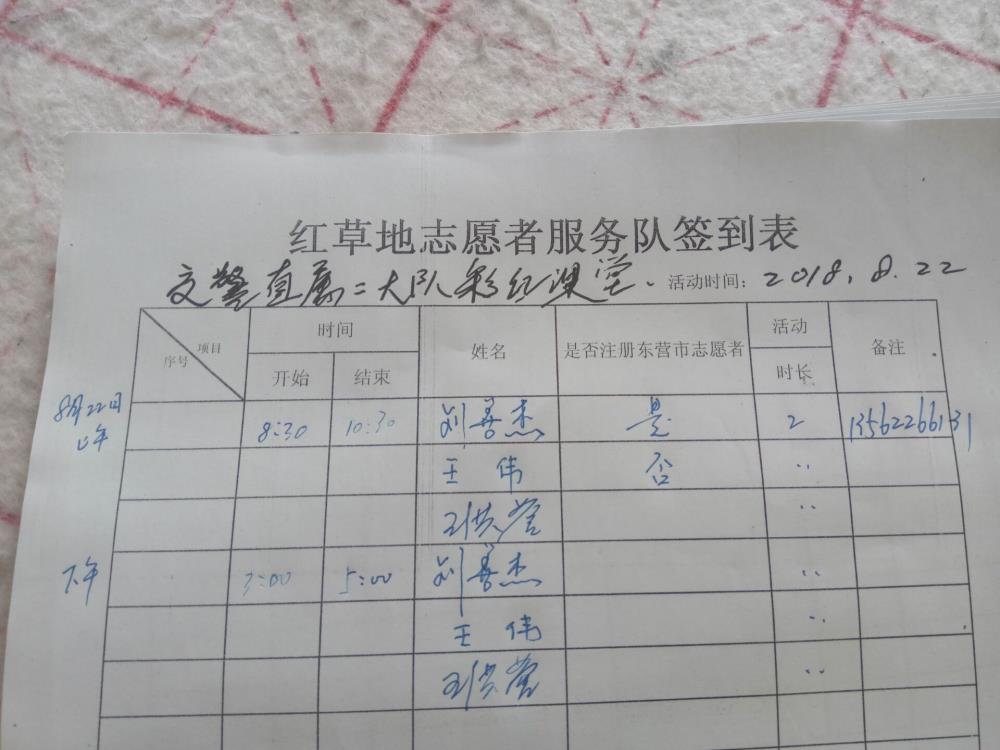 红草地志愿者服务队签到表
交警直属二大队彩虹课堂. 活动时间: 2018.8.22
项目 序号 时间 开始 结束 姓名 是否注册东营市志愿者 活动 时长 备注
8月22日上午 8:30 10:30 刘善杰 是 2 13562266131
王伟 否 ''
''
下午 3:00 5:00 刘善杰 ''
王伟 ''
''